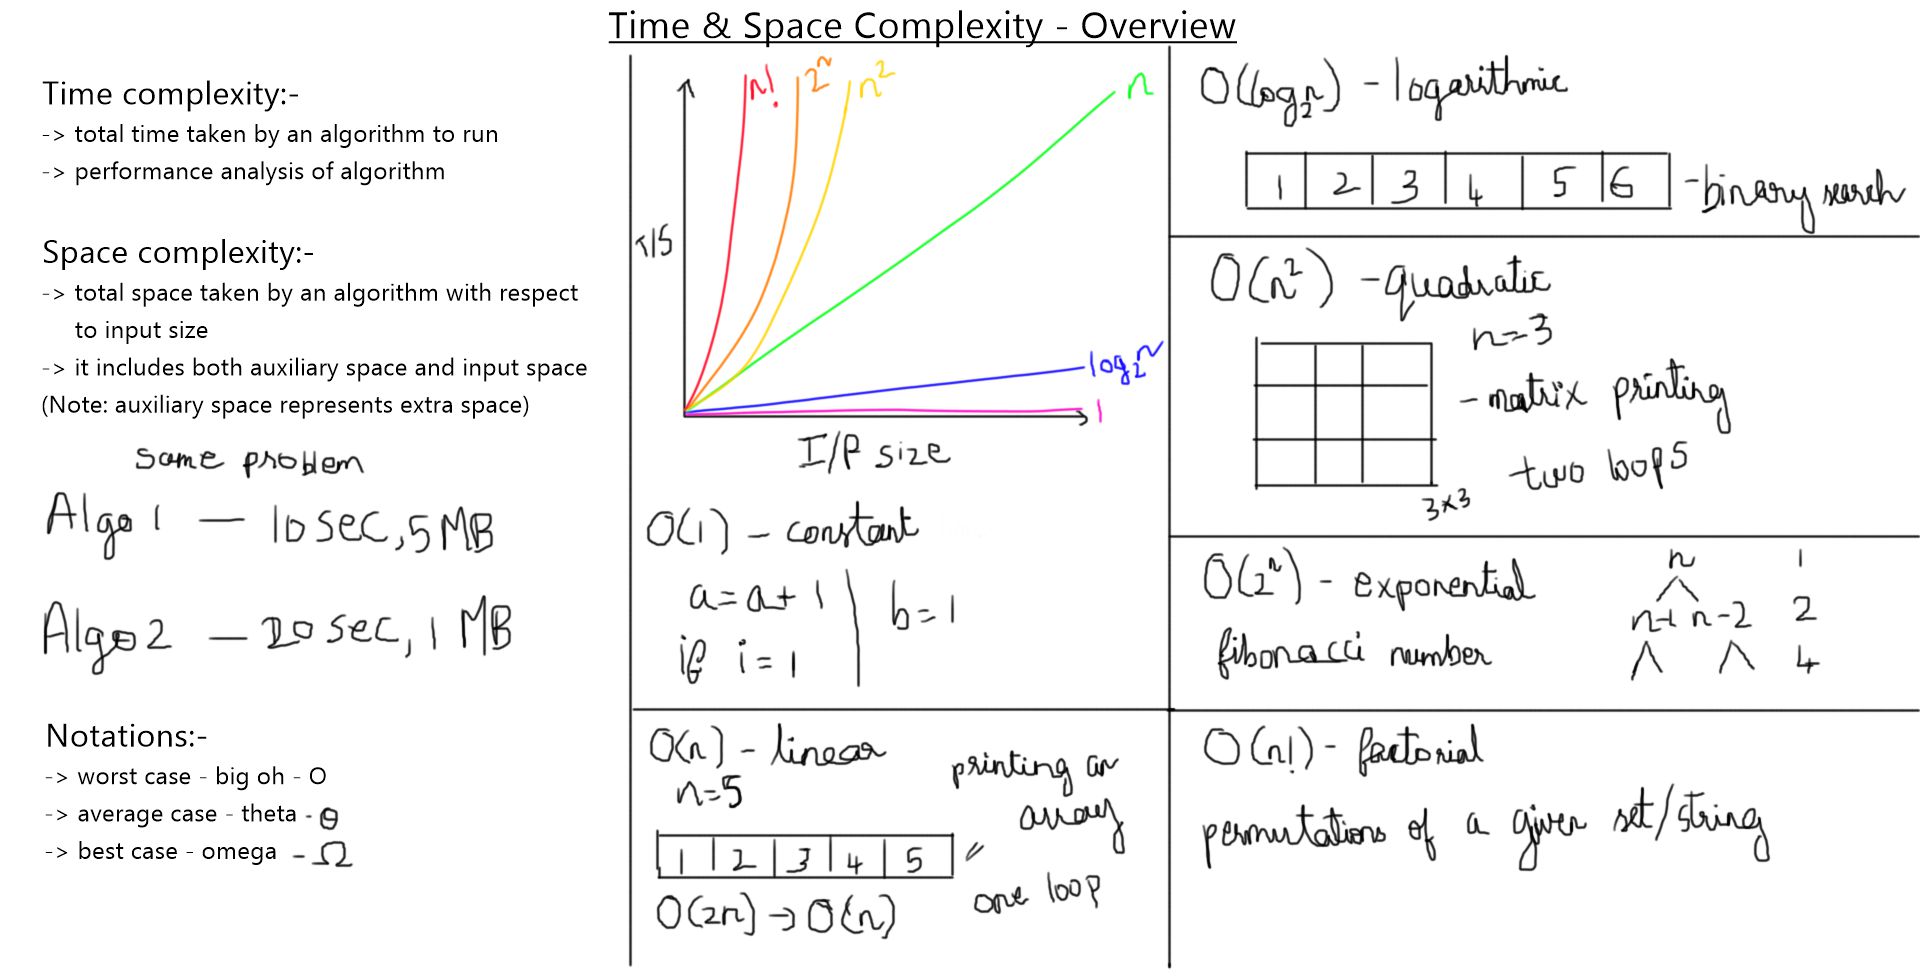 Time & Space Complexity - Overview
Time complexity:-
-> total time taken by an algorithm to run
-> performance analysis of algorithm
Space complexity:-
-> total space taken by an algorithm with respect
to input size
-> it includes both auxiliary space and input space
(Note: auxiliary space represents extra space)
same problem
Algo 1 — 10 sec, 5 MB
Algo 2 — 20 sec, 1 MB
Notations:-
-> worst case - big oh - O
-> average case - theta - Θ
-> best case - omega - Ω
n!
2ⁿ
n²
n
T/S
log₂n
1
I/P size
O(1) - constant
a=a+1
b=1
if i=1
O(n) - linear
n=5
printing an
array
1 2 3 4 5
one loop
O(2n) → O(n)
O(log₂n) - logarithmic
1 2 3 4 5 6 - binary search
O(n²) - quadratic
n=3
- matrix printing
two loops
3×3
O(2ⁿ) - exponential
fibonacci number
n 1
n-1 n-2 2
4
O(n!) - factorial
permutations of a given set/string